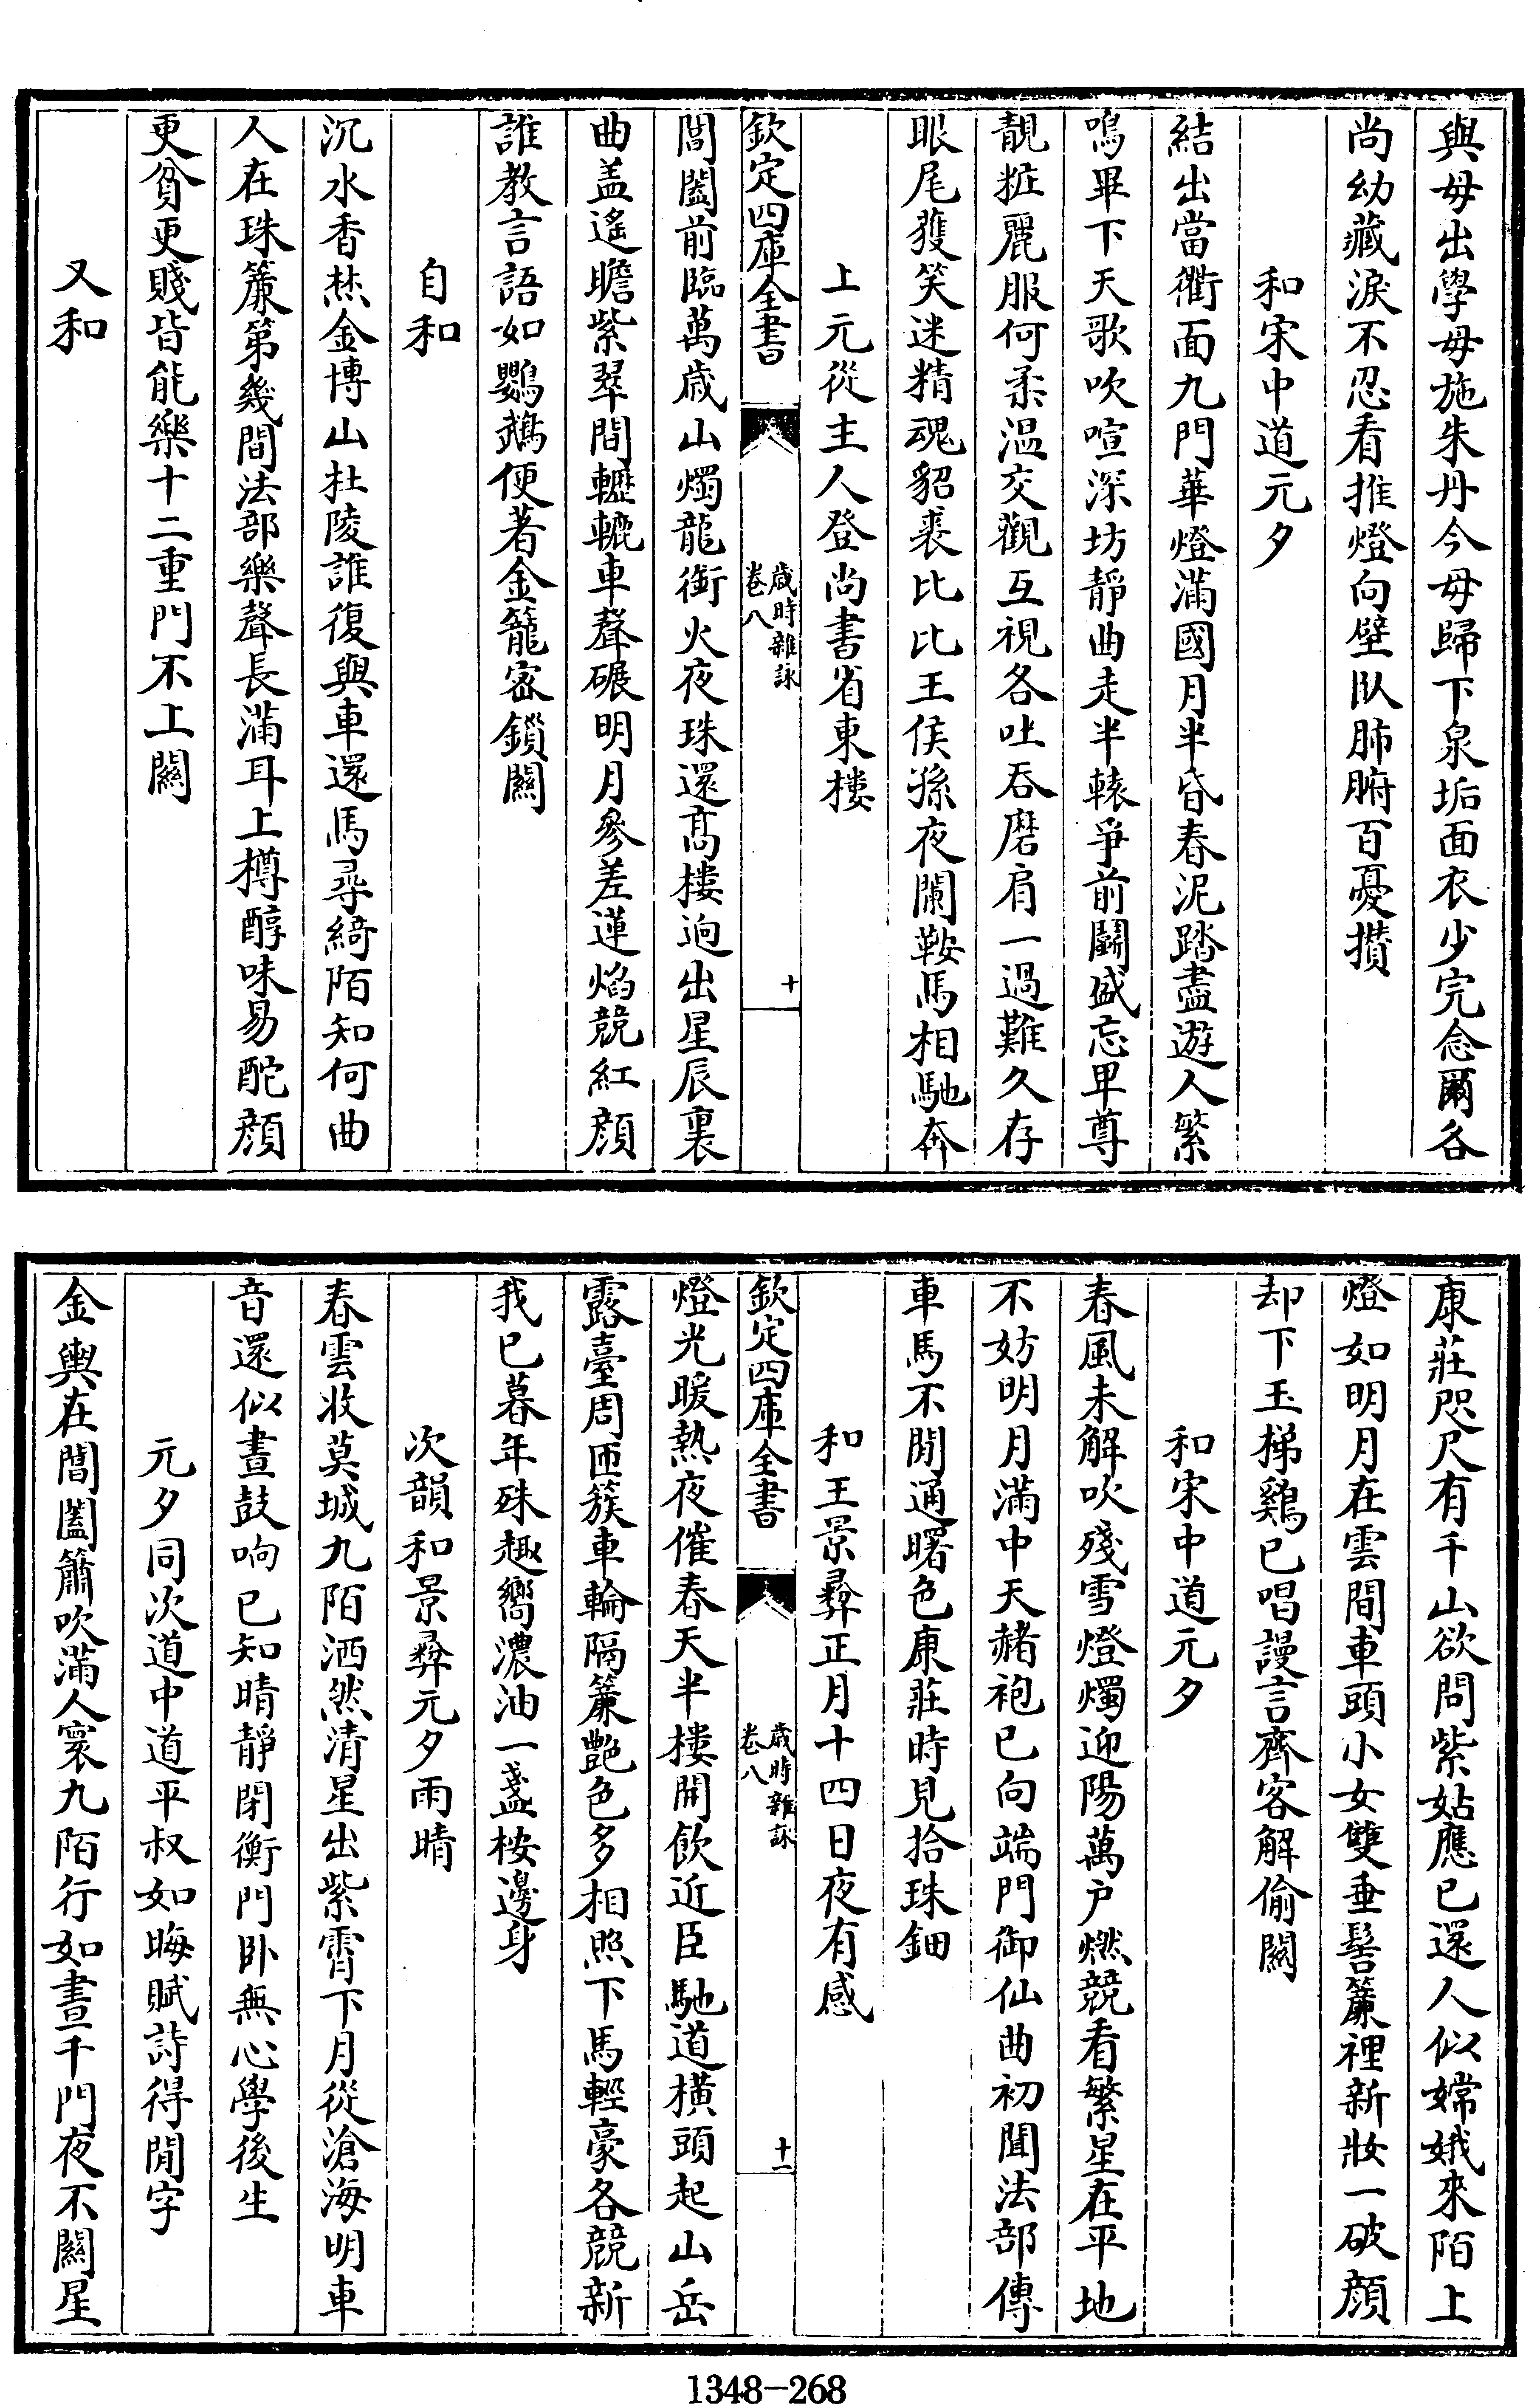 與母出學母施朱丹今母歸下泉垢面衣少完念爾各
尚幼藏淚不忍看推燈向壁臥肺腑百憂攢
和宋中道元夕
結出當衢面九門華燈滿國月半昏春泥踏盡遊人繁
鳴畢下天歌吹喧深坊靜曲走半轅爭前鬭盛忘卑尊
靚粧麗服何柔温交觀互視各吐吞磨肩一過難久存
眼尾獲笑迷精魂貂裘比比王侯孫夜闌鞍馬相馳奔
上元從主人登尚書省東樓
欽定四庫全書
歳時雜詠
卷八
十
閶闔前臨萬歳山燭龍銜火夜珠還髙樓逈出星辰裏
曲盖遙瞻紫翠間轣轆車聲碾明月參差蓮焰競紅顔
誰教言語如鸚鵡便著金籠密鎖闗
自和
沉水香焚金博山杜陵誰復與車還馬尋綺陌知何曲
人在珠簾第幾間法部樂聲長滿耳上樽醇味易酡顔
更貧更賤皆能樂十二重門不上闗
又和
康莊咫尺有千山欲問紫姑應已還人似嫦娥來陌上
燈如明月在雲間車頭小女雙垂髻簾裡新妝一破顔
却下玉梯鷄已唱謾言齊客解偷闗
和宋中道元夕
春風未解吹殘雪燈燭迎陽萬户燃競看繁星在平地
不妨明月滿中天赭袍已向端門御仙曲初聞法部傳
車馬不閒通曙色康莊時見拾珠鈿
和王景彞正月十四日夜有感
欽定四庫全書
歳時雜詠
卷八
十一
燈光暖熱夜催春天半樓開飲近臣馳道横頭起山岳
露臺周匝簇車輪隔簾艶色多相照下馬輕豪各競新
我已暮年殊趣嚮濃油一盞桉邊身
次韻和景彞元夕雨晴
春雲收莫城九陌洒然清星出紫霄下月從滄海明車
音還似晝鼓响已知晴靜閉衡門卧無心學後生
元夕同次道中道平叔如晦賦詩得閒字
金輿在閶闔簫吹滿人寰九陌行如晝千門夜不闗星
1348-268